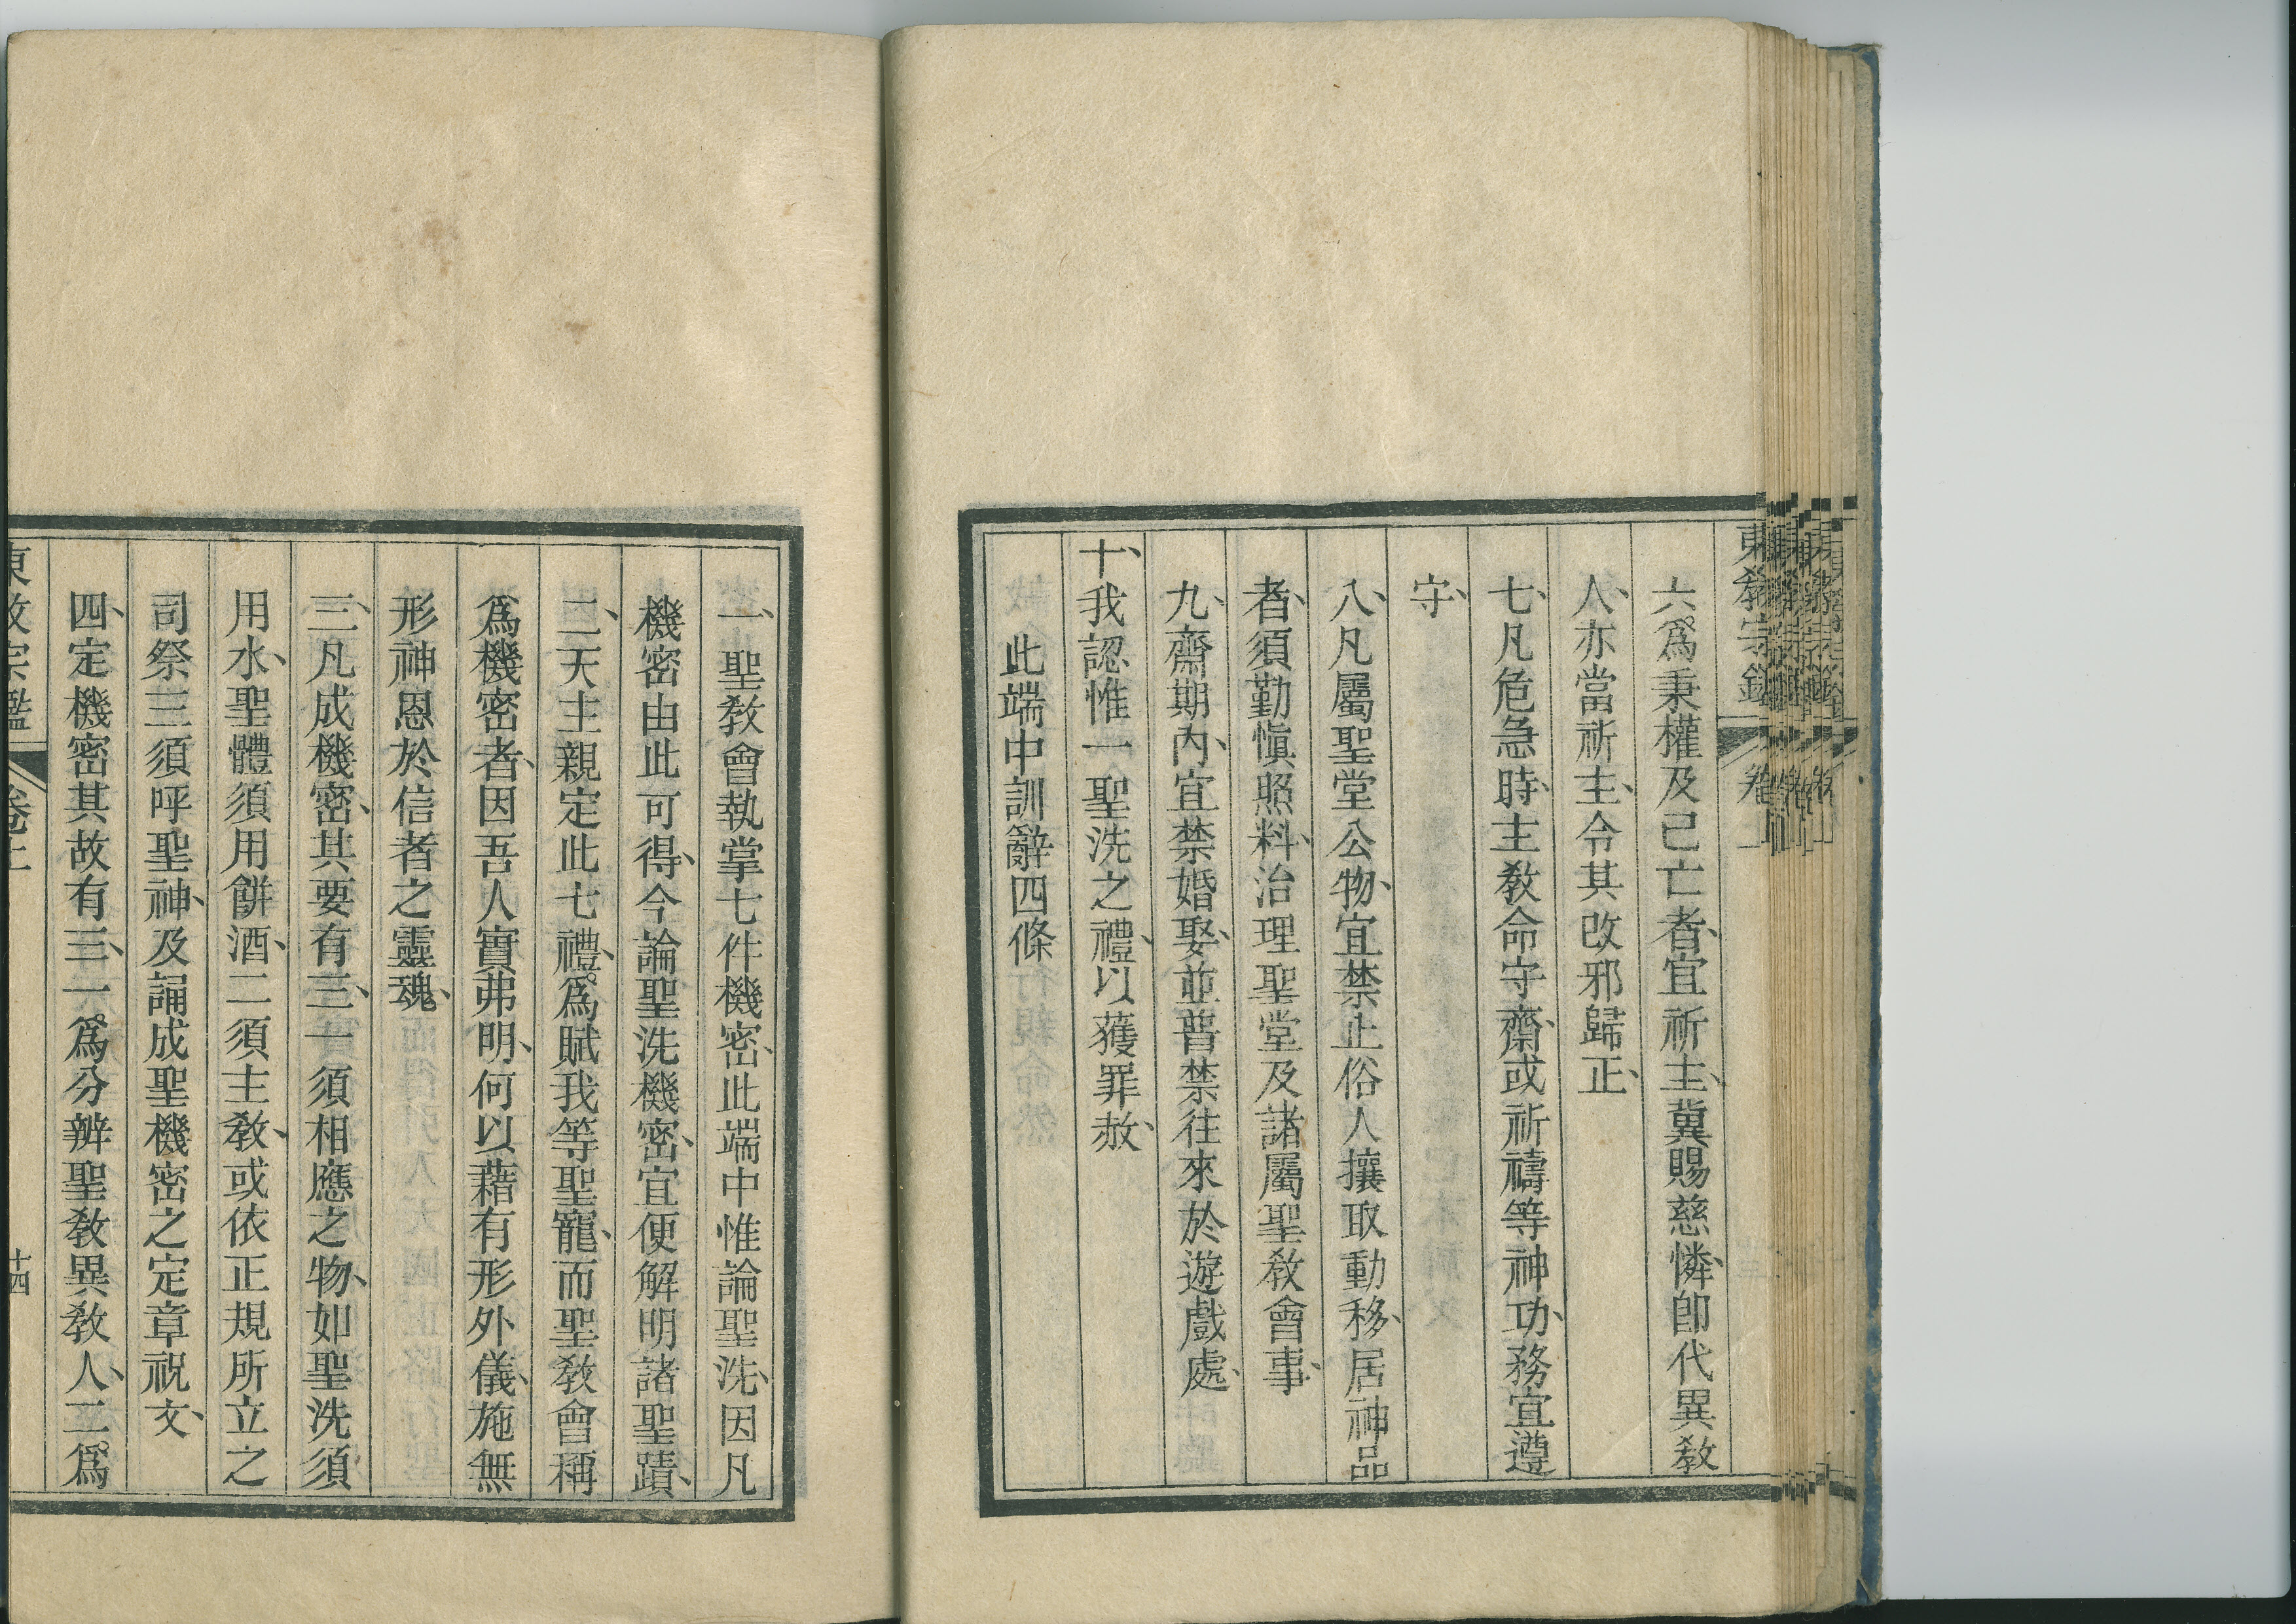 東教宗鑑 卷上
六爲秉權及已亡者、宜祈主、冀賜慈憐、卽代異教
人、亦當祈主、令其改邪歸正、
七、凡危急時、主教命守齋、或祈禱等神功、務宜遵
守、
八、凡屬聖堂公物、宜禁止俗人攘取動移、居神品
者、須勤愼照料、治理聖堂及諸屬聖教會事、
九、齋期內、宜禁婚娶、並普禁往來於遊戲處、
十、我認惟一聖洗之禮、以獲罪赦、
此端中訓辭四條
一、聖教會執掌七件機密、此端中惟論聖洗、因凡
機密由此可得、今論聖洗機密、宜便解明諸聖蹟、
二、天主親定此七禮、爲賦我等聖寵、而聖教會稱
爲機密者、因吾人實弗明、何以藉有形外儀、施無
形神恩於信者之靈魂、
三、凡成機密、其要有三、一須相應之物、如聖洗須
用水、聖體須用餅酒、二須主教、或依正規所立之
司祭三須呼聖神、及誦成聖機密之定章祝文、
四、定機密其故有三、一爲分辨聖教異教人、二爲
東教宗鑑 卷上 十四